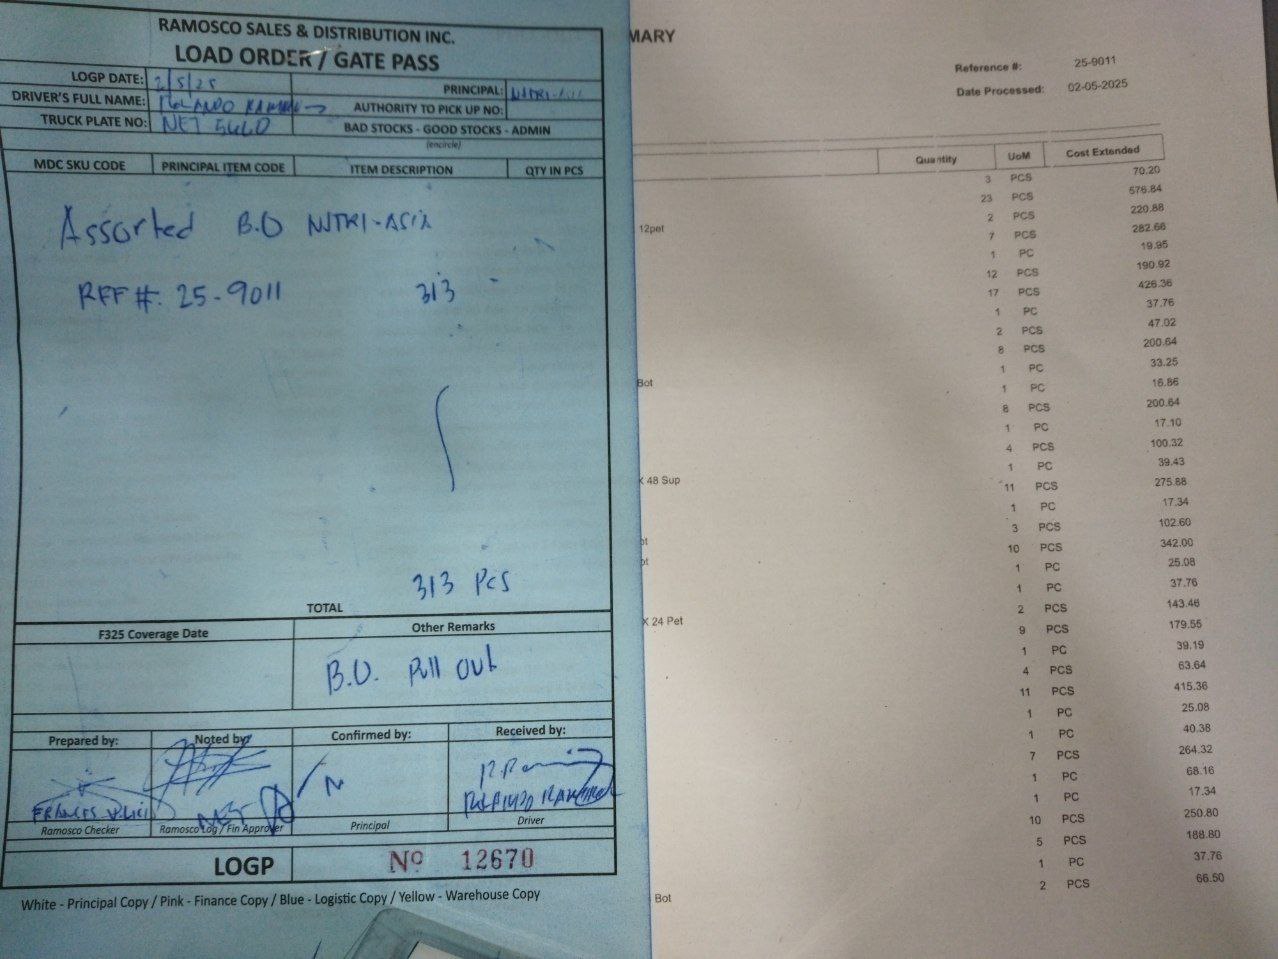 RAMOSCO SALES & DISTRIBUTION INC.
LOAD ORDER / GATE PASS
LOGP DATE: 2/5/25
PRINCIPAL: NUTRI-
DRIVER'S FULL NAME:
AUTHORITY TO PICK UP NO:
TRUCK PLATE NO: NET 5460
BAD STOCKS - GOOD STOCKS - ADMIN
(encircle)
MDC SKU CODE PRINCIPAL ITEM CODE ITEM DESCRIPTION QTY IN PCS
Assorted B.O NUTRI-ASIA
REF #: 25-9011 313
313 Pcs
TOTAL
F325 Coverage Date Other Remarks
B.O. Pull Out
Prepared by: Noted by: Confirmed by: Received by:
Ramosco Checker Ramosco Log / Fin Approver Principal Driver
LOGP Nº 12670
White - Principal Copy / Pink - Finance Copy / Blue - Logistic Copy / Yellow - Warehouse Copy
MARY
Reference #: 25-9011
Date Processed: 02-05-2025
Quantity UoM Cost Extended
3 PCS 70.20
23 PCS 576.84
12pet 2 PCS 220.88
7 PCS 282.66
1 PC 19.95
12 PCS 190.92
17 PCS 426.36
1 PC 37.76
2 PCS 47.02
8 PCS 200.64
Bot 1 PC 33.25
1 PC 16.86
8 PCS 200.64
1 PC 17.10
4 PCS 100.32
X 48 Sup 1 PC 39.43
11 PCS 275.88
1 PC 17.34
ot 3 PCS 102.60
ot 10 PCS 342.00
1 PC 25.08
1 PC 37.76
X 24 Pet 2 PCS 143.46
9 PCS 179.55
1 PC 39.19
4 PCS 63.64
11 PCS 415.36
1 PC 25.08
1 PC 40.38
7 PCS 264.32
1 PC 68.16
1 PC 17.34
10 PCS 250.80
5 PCS 188.80
1 PC 37.76
Bot 2 PCS 66.50